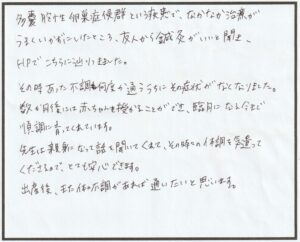 多嚢胞性卵巣症候群という疾患で、なかなか治療が
うまくいかずにいたところ、友人から鍼灸がいいと聞き、
HPでこちらに辿りつきました。
その時あった不調も何度か通ううちにその症状がなくなりました。
数か月後には赤ちゃんを授かることができ、臨月になる今まで
順調に育ってくれています。
先生は親身になって話を聞いてくれて、その時々の体調を気遣って
くださるので、とても安心できます。
出産後、また体の不調があれば通いたいと思います。